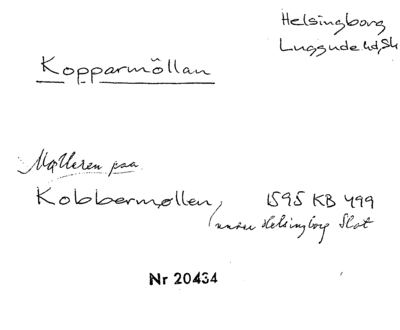 Helsingborg
Luggude hd, Sk
Kopparmöllan
Mølleren paa
Kobbermøllen, 1595 KB 499
under Helsingborg Slot
Nr 20434